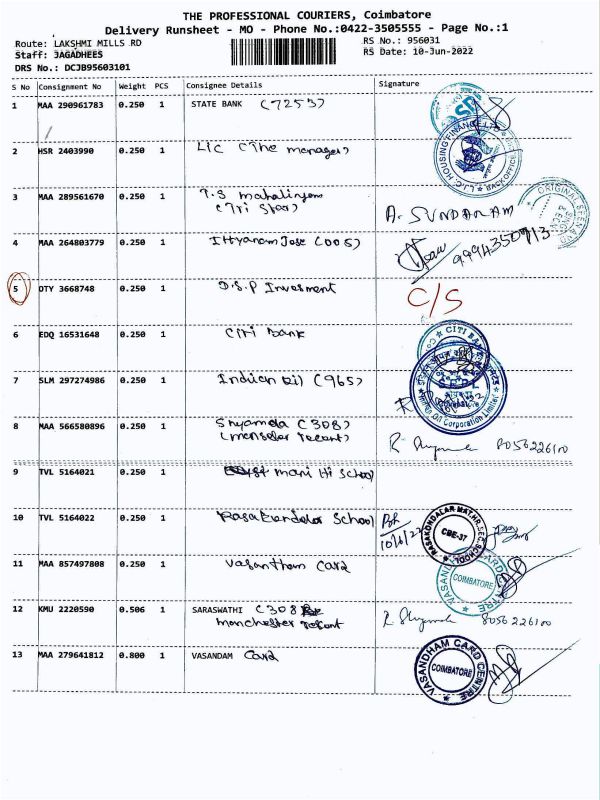 THE PROFESSIONAL COURIERS, Coimbatore
Delivery Runsheet - MO - Phone No.:0422-3505555 - Page No.:1
Route: LAKSHMI MILLS RD
RS No.: 956031
Staff: JAGADHEES
RS Date: 10-Jun-2022
DRS No.: DCJB95603101
S No Consignment No Weight PCS Consignee Details Signature
1 MAA 290961783 0.250 1 STATE BANK (7253)
2 HSR 2403990 0.250 1 LIC (The manager)
L.I.C. HOUSING FINANCE LTD BACK OFFICE
3 MAA 289561670 0.250 1 T.S mahalingam
(Tri Star) A. SUNDARAM
ORIGINAL SEEN AND
4 MAA 264803779 0.250 1 Jose (005) 9994350713
5 DTY 3668748 0.250 1 D.S.P Invesment C/S
6 EDQ 16531648 0.250 1 Citi Bank
CITI BANK
7 SLM 297274986 0.250 1 Indian Oil (965)
Indian Oil Corporation Limited
8 MAA 566580896 0.250 1 Shyamala (308)
R 8056226100
9 TVL 5164021 0.250 1 mani Hi School
10 TVL 5164022 0.250 1 Rasakondalar School
10/6/22
RASAKONDALAR MAT.HR.SEC.SCHOOL CBE-37
11 MAA 857497808 0.250 1 Vasantham Card
VASANDHAM CARD CENTRE COIMBATORE
12 KMU 2220590 0.506 1 SARASWATHI (308
manchester R 8056226100
13 MAA 279641812 0.800 1 VASANDAM Card
VASANDHAM CARD CENTRE COIMBATORE